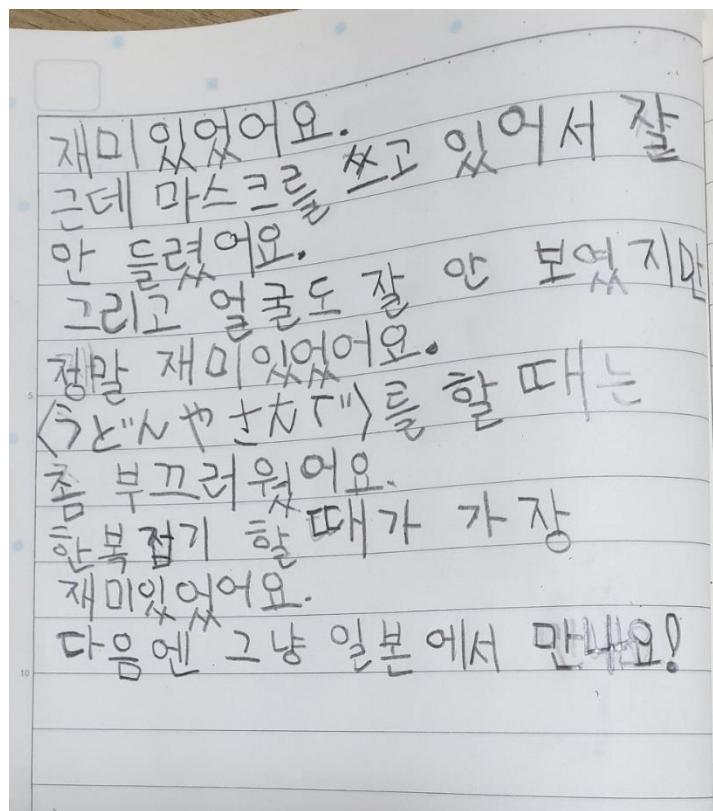 재미있었어요.
근데 마스크를 쓰고 있어서 잘
안 들렸어요.
그리고 얼굴도 잘 안 보였지만
정말 재미있었어요.
〈うどんやさんで〉를 할 때는
좀 부끄러웠어요.
한복접기 할 때가 가장
재미있었어요.
다음엔 그냥 일본에서 만나요!
5
10